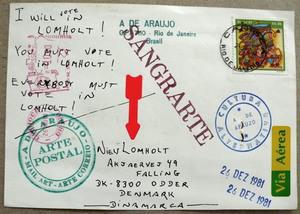 I WILL VOTE
IN LOMHOLT!
YOU MUST VOTE
IN LOMHOLT!
EVERYBODY MUST
VOTE IN
LOMHOLT!
A DE ARAUJO
Rio de Janeiro
Brasil
SANGRARTE
A. DE ARAUJO
ARTE
POSTAL
MAIL ART - ARTE CORREIO
NIELS LOMHOLT
FALLING
DK-8300 ODDER
DENMARK
DINAMARCA
CULTURA
A. DE
ARAUJO
ALTERNATIVA
26 DEZ 1981
26 DEZ 1981
Via Aérea